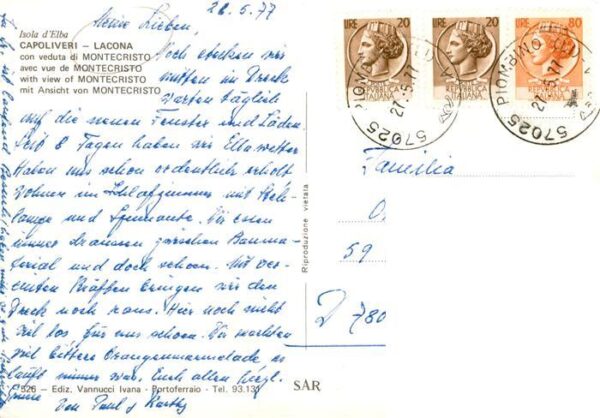 26.5.77
Meine Lieben,
Isola d'Elba
CAPOLIVERI – LACONA
con veduta di MONTECRISTO
avec vue de MONTECRISTO
with view of MONTECRISTO
mit Ansicht von MONTECRISTO
Noch stecken wir
mitten im Dreck
warten täglich
auf die neuen Fenster und Läden
Seit 8 Tagen haben wir Elbawetter
Haben uns schon ordentlich erholt
Wohnen im Schlafzimmer mit Steh-
lampe und Spinnante. Wir essen
immer draussen zwischen Bauma-
terial und doch schoen. Mit ver-
einten Kräften bringen wir den
Dreck noch raus. Hier noch nicht
viel los für uns schoen. Wir machten
viel bittere Orangenmarmelade es
läuft immer was. Euch allen herzl.
Grüsse
von Paul & Kathy
526 – Ediz. Vannucci Ivana - Portoferraio - Tel. 93.131
SAR
Riproduzione vietata
LIRE 20
LIRE 20
LIRE 80
REPUBBLICA ITALIANA
57025 PIOMBINO
27.5.77
57025 PIOMBINO
27.5.77
Familia
O.
59
D 780